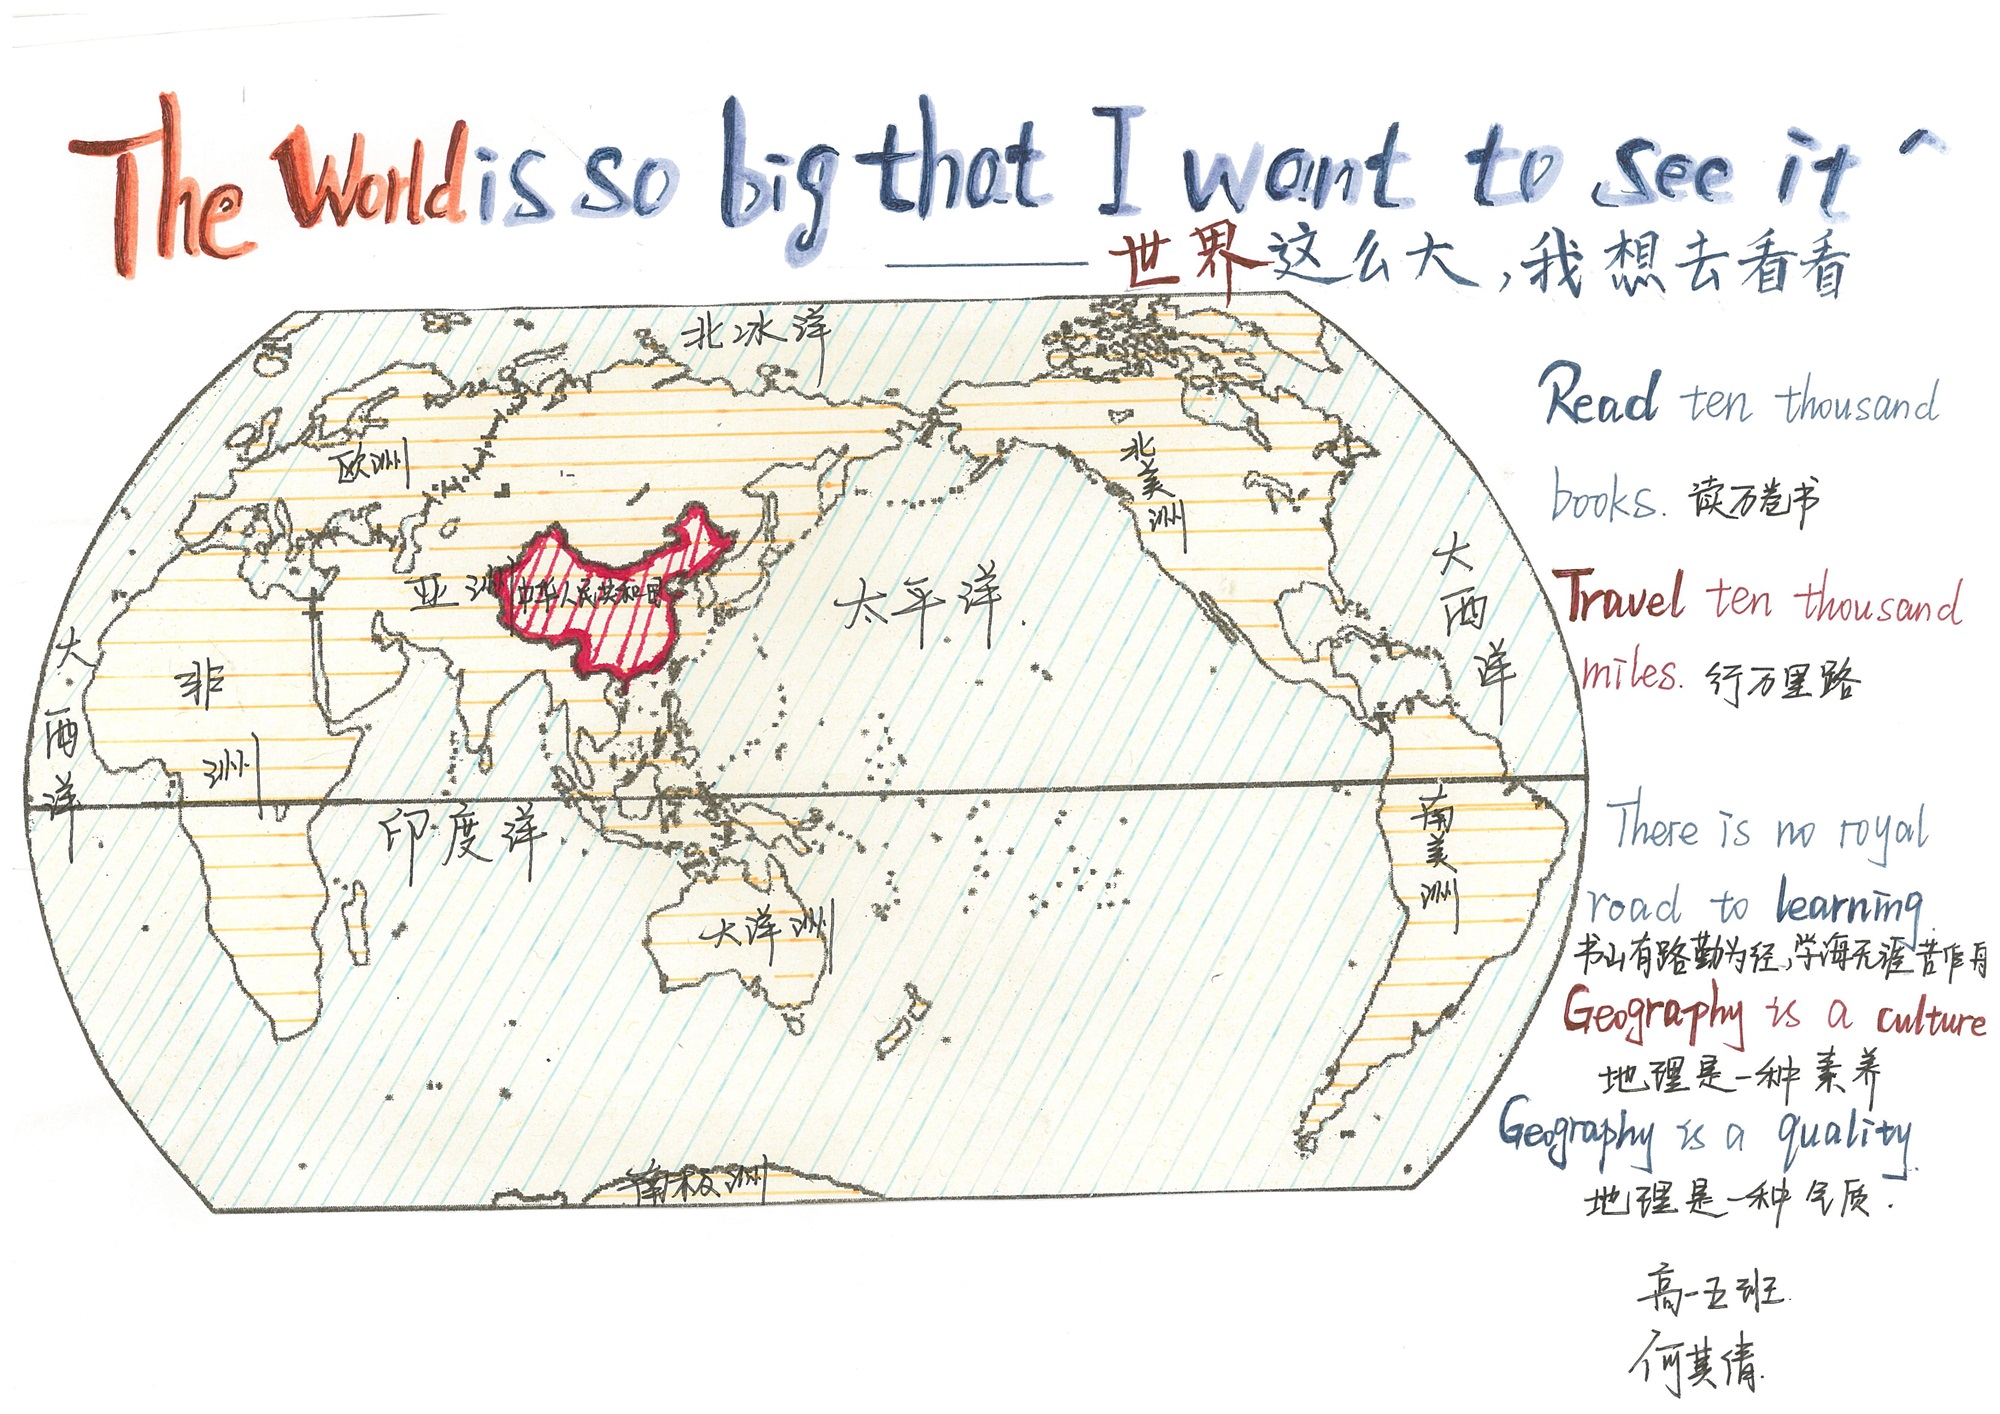 The World is so big that I want to see it ^
世界这么大,我想去看看
北冰洋
欧洲
北美洲
亚洲
中华人民共和国
太平洋
大西洋
大西洋
非洲
印度洋
南美洲
大洋洲
南极洲
Read ten thousand
books. 读万卷书
Travel ten thousand
miles. 行万里路
There is no royal
road to learning.
书山有路勤为径,学海无涯苦作舟
Geography is a culture
地理是一种素养
Geography is a quality.
地理是一种气质.
高一五班
何其倩